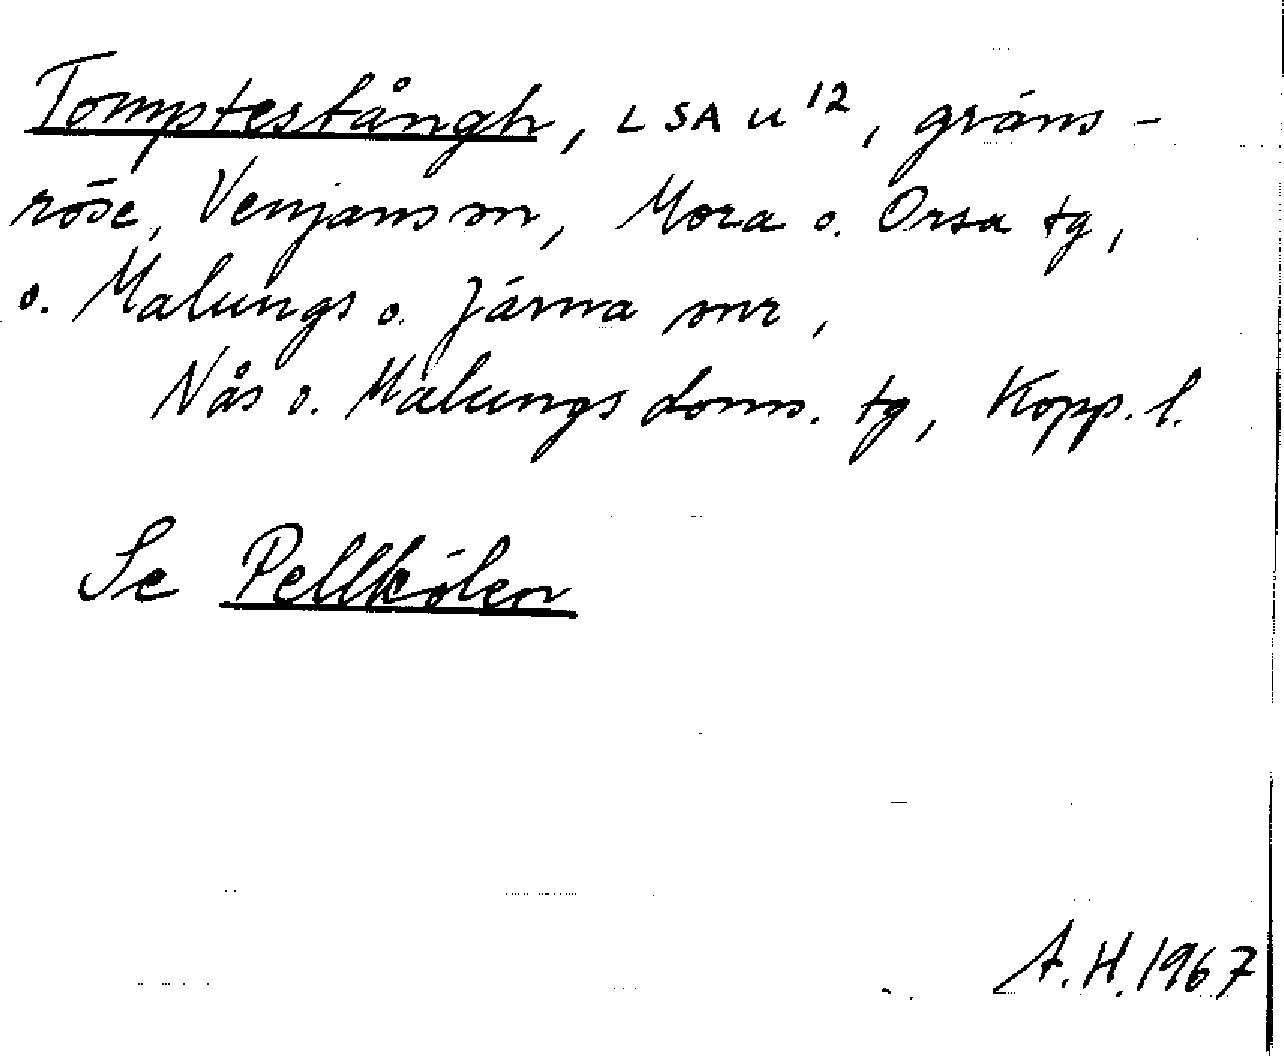 Tomptestångh, LSA u 12, gräns-
röse, Venjans sn, Mora o. Orsa tg,
o. Malungs o. Järna snr,
Nås o. Malungs doms. tg, Kopp. l.
Se Pellkölen
A.H. 1967